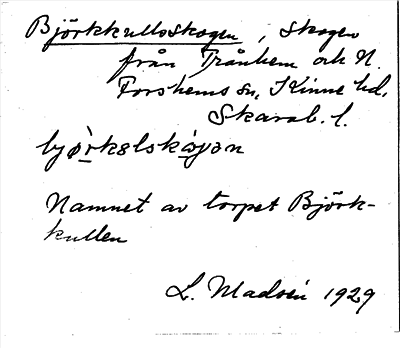 Björkkullsskogen, skogen
från Trånhem och N.
Forshems sn, Kinne hd,
Skarab. l.
Namnet av torpet Björk-
kullen
L. Madsén 1929